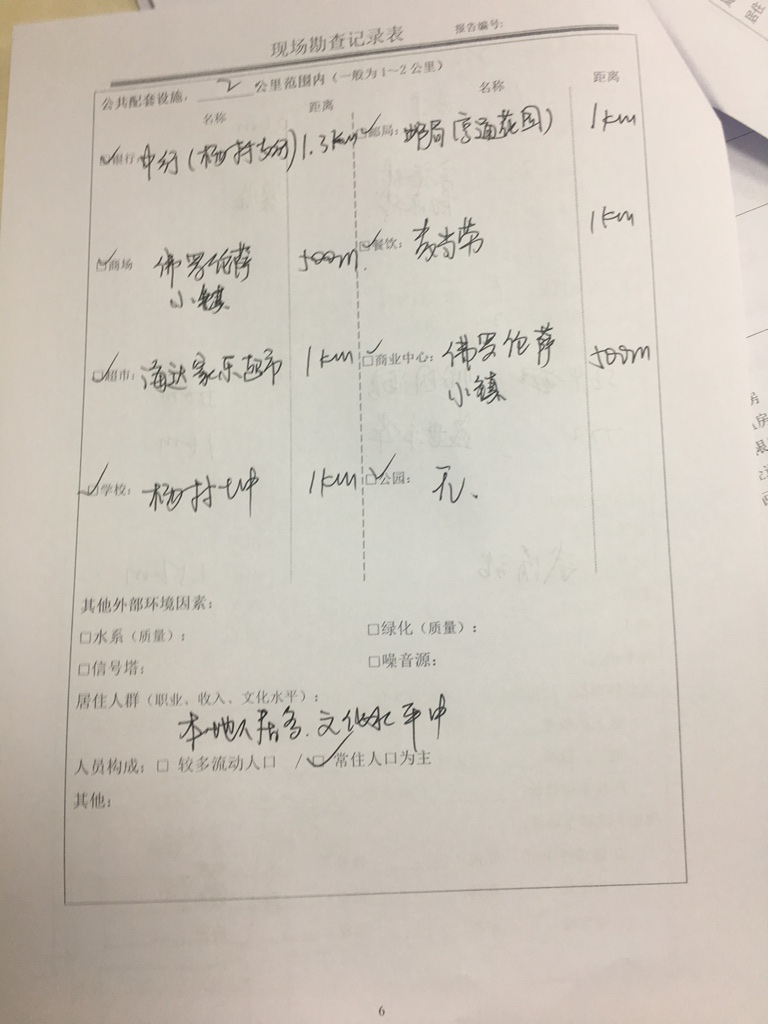 现场勘查记录表
报告编号:
公共配套设施, 2 公里范围内（一般为1~2公里）
名称 距离 名称 距离
☑银行: 中行(杨村支行) 1.3km ☑邮局: 邮局(亨通花园) 1km
☑商场 佛罗伦萨小镇 500m ☑餐饮: 麦当劳 1km
☑超市: 海达家乐超市 1km ☑商业中心: 佛罗伦萨小镇 500m
☑学校: 杨村七中 1km ☑公园: 无、
其他外部环境因素:
□水系（质量）: □绿化（质量）:
□信号塔: □噪音源:
居住人群（职业、收入、文化水平）:
本地人居多、文化水平中
人员构成: □ 较多流动人口 / ☑ 常住人口为主
其他:
6